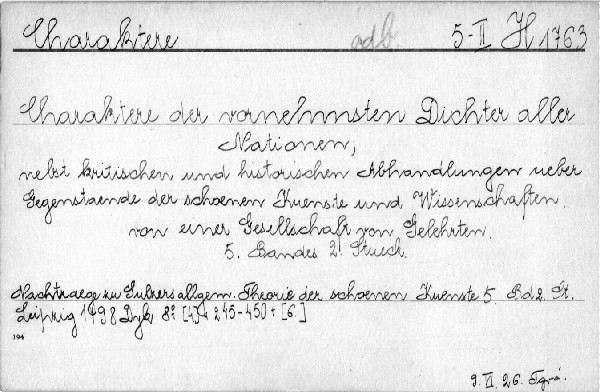 Charaktere adb. 5-II H 1763
Charaktere der vornehmsten Dichter aller
Nationen,
nebst kritischen und historischen Abhandlungen ueber
Gegenstaende der schoenen Kuenste und Wissenschaften.
von einer Gesellschaft von Gelehrten.
5. Bandes 2. Stueck.
Nachtraege zu Sulzers allgem. Theorie der schoenen Kuenste 5. Bd 2. St.
Leipzig 1798 Dyk 8º [4] + 245-450 + [6]
194
9. VI. 26.